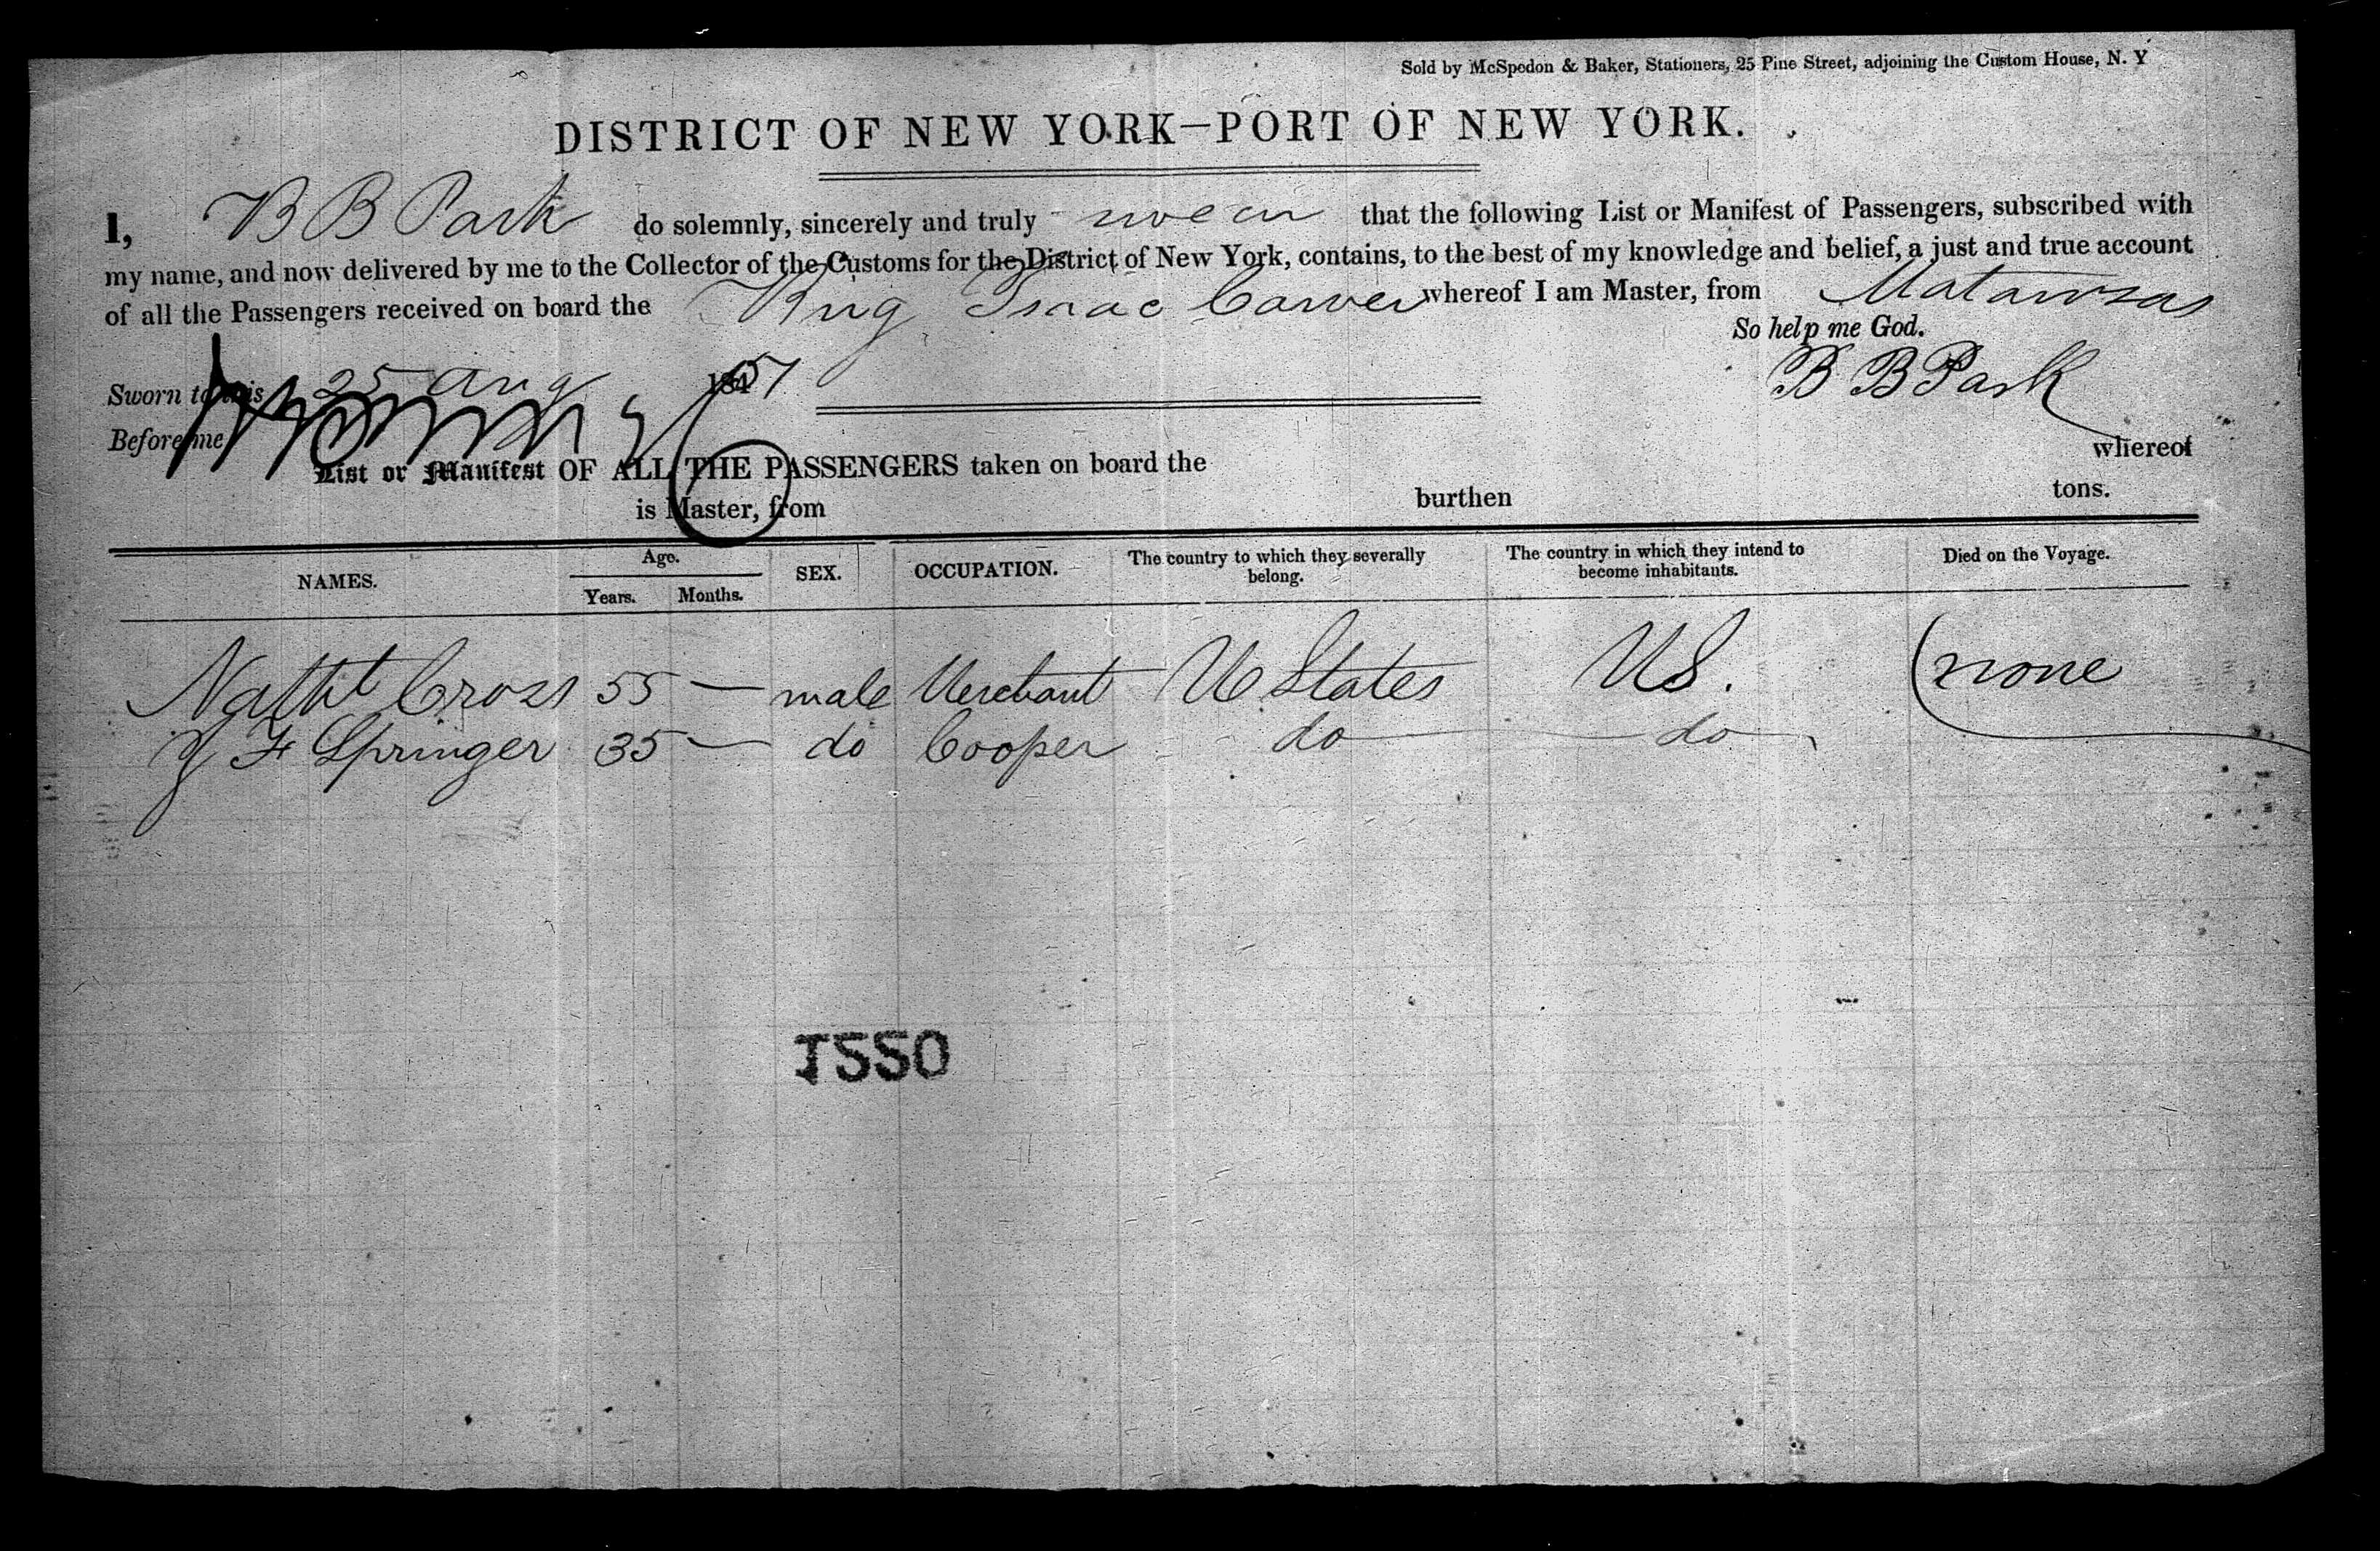 Sold by McSpedon & Baker, Stationers, 25 Pine Street, adjoining the Custom House, N. Y
DISTRICT OF NEW YORK—PORT OF NEW YORK.
I, B B Park do solemnly, sincerely and truly swear that the following List or Manifest of Passengers, subscribed with
my name, and now delivered by me to the Collector of the Customs for the District of New York, contains, to the best of my knowledge and belief, a just and true account
of all the Passengers received on board the Brig Isaac Carver whereof I am Master, from Matanzas
So help me God.
Sworn to this 25 Aug 1851
B B Park
Before me
List or Manifest OF ALL THE PASSENGERS taken on board the whereof
is Master, from burthen tons.
NAMES. Age. Years. Months. SEX. OCCUPATION. The country to which they severally belong. The country in which they intend to become inhabitants. Died on the Voyage.
Nathl Cross 55 — male Merchant U States US. none
J F Springer 35 — do Cooper do do
1550